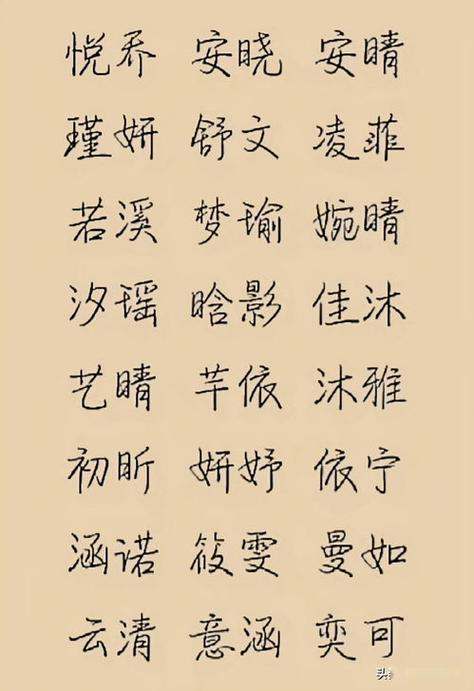 悦乔 安晓 安晴
瑾妍 舒文 凌菲
若溪 梦瑜 婉晴
汐瑶 晗影 佳沐
艺晴 芊依 沐雅
初昕 妍妤 依宁
涵诺 筱雯 曼如
云清 意涵 奕可
头